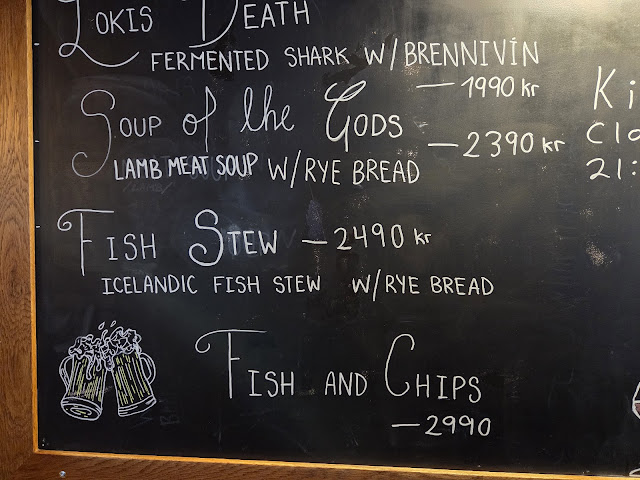 LOKIS DEATH
FERMENTED SHARK W/BRENNIVÍN
—1990 kr
SOUP of the GODS
—2390 kr
LAMB MEAT SOUP W/RYE BREAD
FISH STEW —2490 kr
ICELANDIC FISH STEW W/RYE BREAD
FISH AND CHIPS
—2990
Ki
Clo
21: